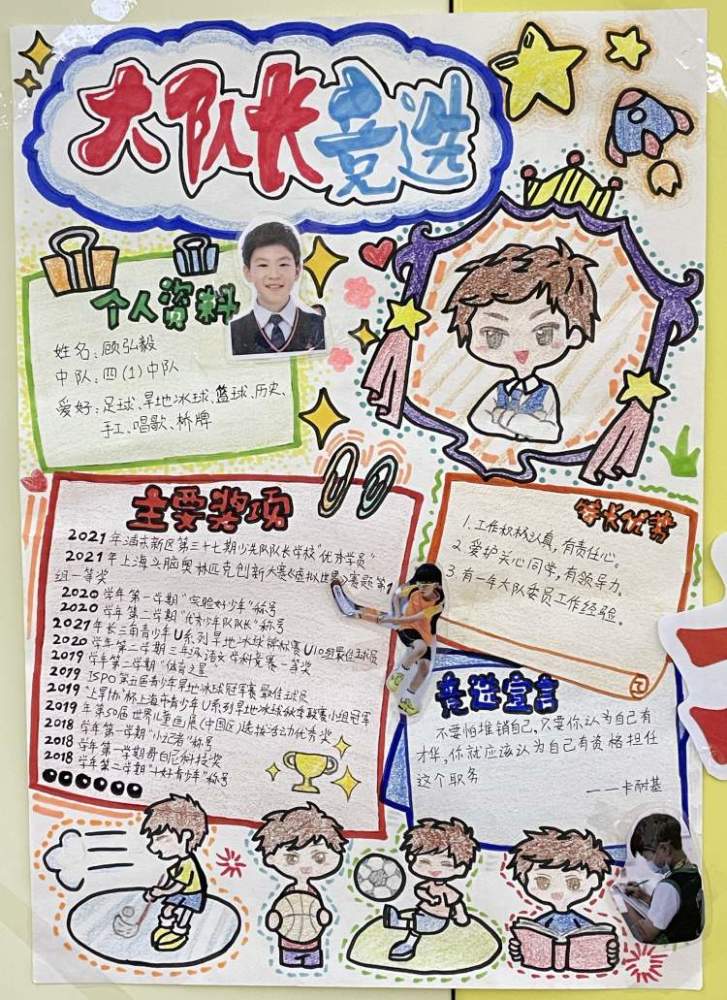 大队长竞选
个人资料
姓名:顾弘毅
中队:四(1)中队
爱好:足球、旱地冰球、篮球、历史、
手工、唱歌、桥牌
主要奖项
2021年浦东新区第三十七期少先队队长学校“优秀学员”
2021年上海头脑奥林匹克创新大赛《虚拟世界》赛题第1
组一等奖
2020学年第一学期“实验好少年”称号
2020学年第二学期“优秀少年队队长”称号
2021年长三角青少年U系列旱地冰球锦标赛U10组最佳球员
2020学年第二学期三年级语文学科竞赛一等奖
2019学年第二学期“体育之星”
2019 ISPO第五届青少年旱地冰球冠军赛最佳球员
2019“上旱协”杯上海市青少年U系列旱地冰球秋季联赛小组冠军
2019年第50届世界儿童画展(中国区)选拔活动优秀奖
2018学年第一学期“小记者”称号
2018学年第一学期爵自己科技奖
2018学年第二学期“十好青少年”称号
特长优势
1.工作积极认真,有责任心。
2.爱护关心同学,有领导力。
3.有一年大队委员工作经验。
竞选宣言
不要怕推销自己,只要你认为自己有
才华,你就应该认为自己有资格担任
这个职务
——卡耐基